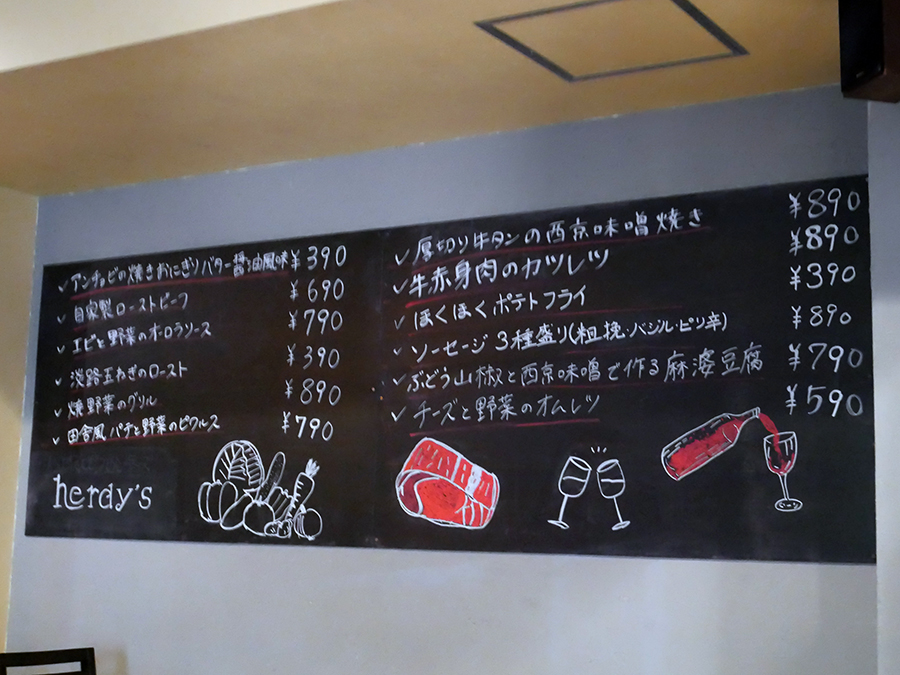 アンチョビの焼きおにぎりバター醤油風味 ¥390
自家製ローストビーフ ¥690
エビと野菜のオーロラソース ¥790
淡路玉ねぎのロースト ¥390
燻野菜のグリル ¥890
田舎風パテと野菜のピクルス ¥790
herdy's
厚切り牛タンの西京味噌焼き ¥890
牛赤身肉のカツレツ ¥890
ほくほくポテトフライ ¥390
ソーセージ3種盛り(粗挽・バジル・ピリ辛) ¥890
ぶどう山椒と西京味噌で作る麻婆豆腐 ¥790
チーズと野菜のオムレツ ¥590